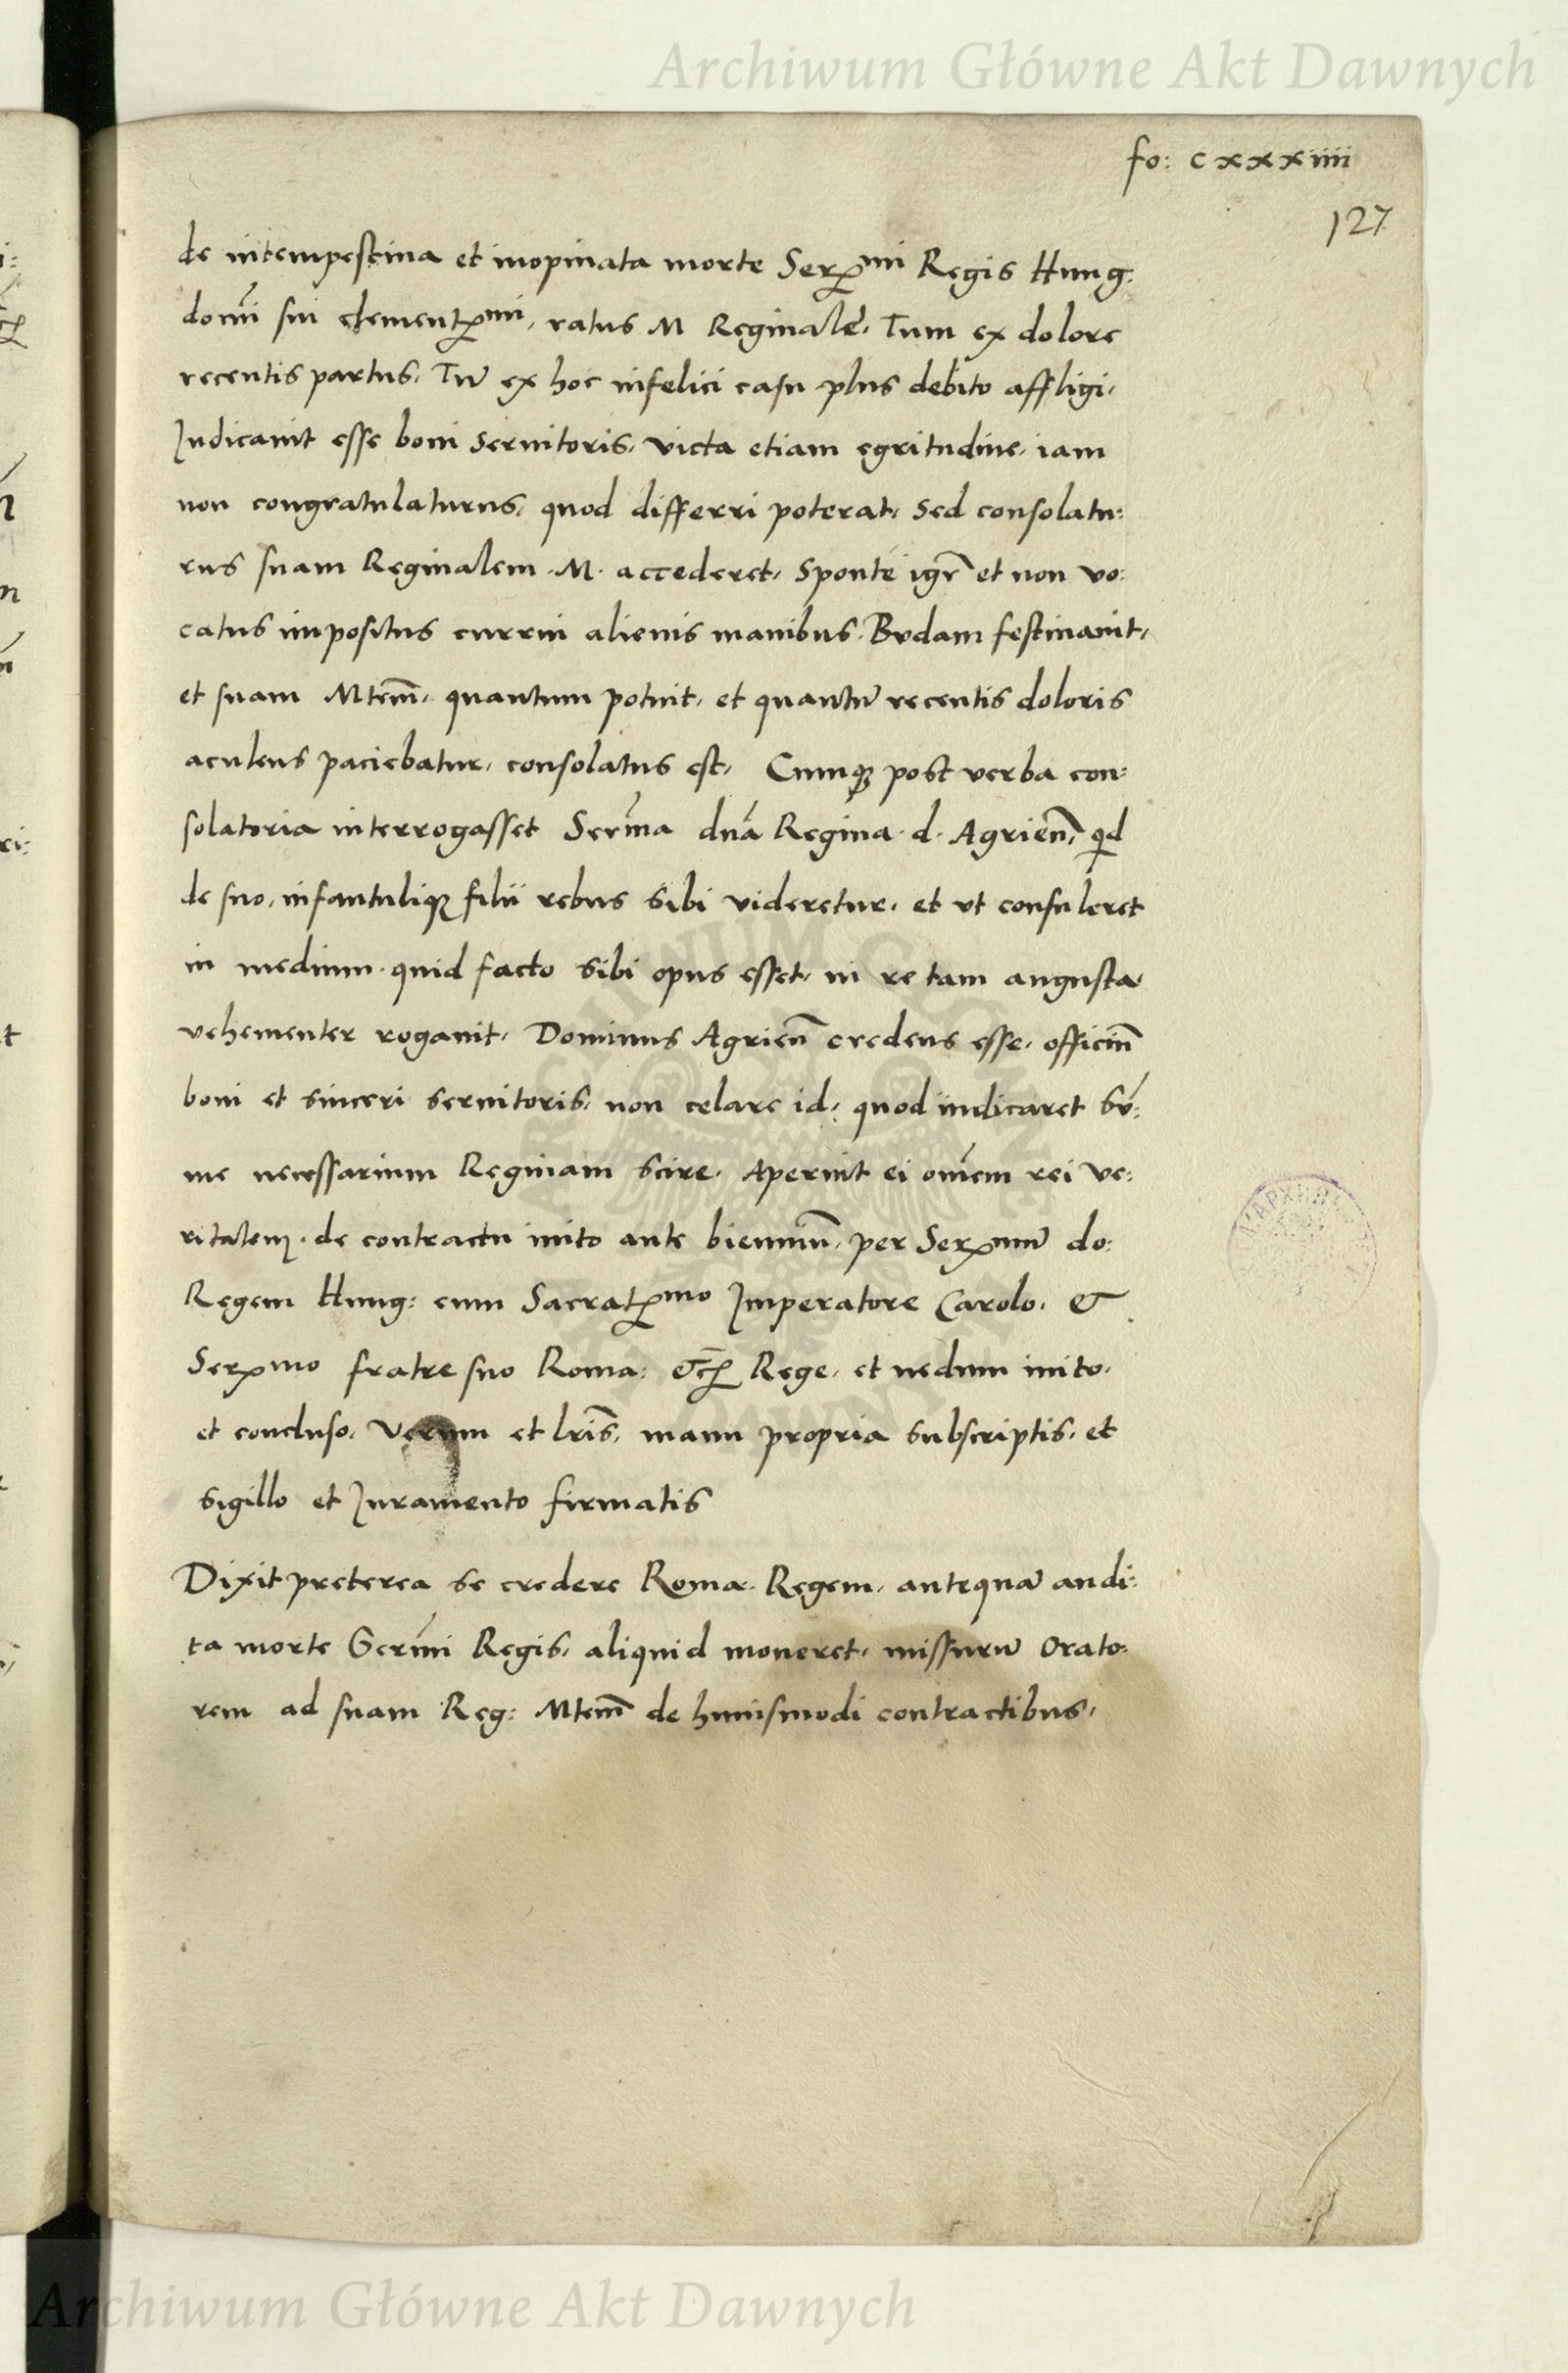 Archiwum Główne Akt Dawnych
fo: cxxxiiii
127
de intempestiua et inopinata morte Serᵐⁱ Regis Hung:
domi sui clementᵐⁱ, ratus M Reginalē. Tum ex dolore
recentis partus. Tū ex hoc infelici casu plus debito affligi,
Iudicauit esse boni seruitoris, victa etiam egritudine, iam
non congratulaturus, quod differri poterat, sed consolatu:
rus suam Reginalem .M. accederet, Sponte igr̄ et non vo:
catus impositus currui alienis manibus. Budam festinauit,
et suam Mtem̄, quantum potuit, et quantū recentis doloris
aculeus paciebatur, consolatus est, Cumqꝫ post verba con:
solatoria interrogasset Serm̄a dn̄a Regina d. Agrien̄, qid
de suo, infantuliqꝫ filii rebus sibi videretur, et vt consuleret
in medium quid facto sibi opus esset, in re tam angusta
vehementer rogauit, Dominus Agrien̄ credens esse, officiū
boni et sinceri seruitoris, non celare id, quod iudicaret
me necessarium Reginam scire, Aperuit ei om̄em rei ve:
ritatem, de contractu inito ante bienniū, per Serᵐū do:
Regem Hung: cum Sacratᵐᵒ Imperatore Carolo, &
Serᵐᵒ fratre suo Roma: &c̄ Rege, et nedum inito,
et concluso, Verum et lr̄is, manu propria subscriptis, et
sigillo et Iuramento firmatis
Dixit preterea se credere Roma. Regem, antequā audi:
ta morte Serm̄i Regis, aliquid moueret, missurū Orato:
rem ad suam Reg: Mtem̄ de huiusmodi contractibus,
Archiwum Główne Akt Dawnych